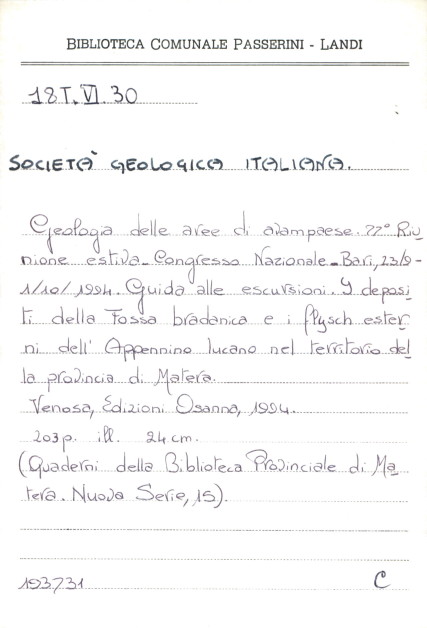 BIBLIOTECA COMUNALE PASSERINI - LANDI
18T.VI.30
SOCIETÀ GEOLOGICA ITALIANA.
Geologia delle aree di avampaese. 77° Riu-
nione estiva - Congresso Nazionale - Bari, 23/9-
1/10/1994. Guida alle escursioni. I deposi
ti della Fossa bradanica e i flysch ester
ni dell'Appennino lucano nel territorio del
la provincia di Matera.
Venosa, Edizioni Osanna, 1994.
203 p. ill. 24 cm.
(Quaderni della Biblioteca Provinciale di Ma
tera. Nuova Serie, 15).
193731 C